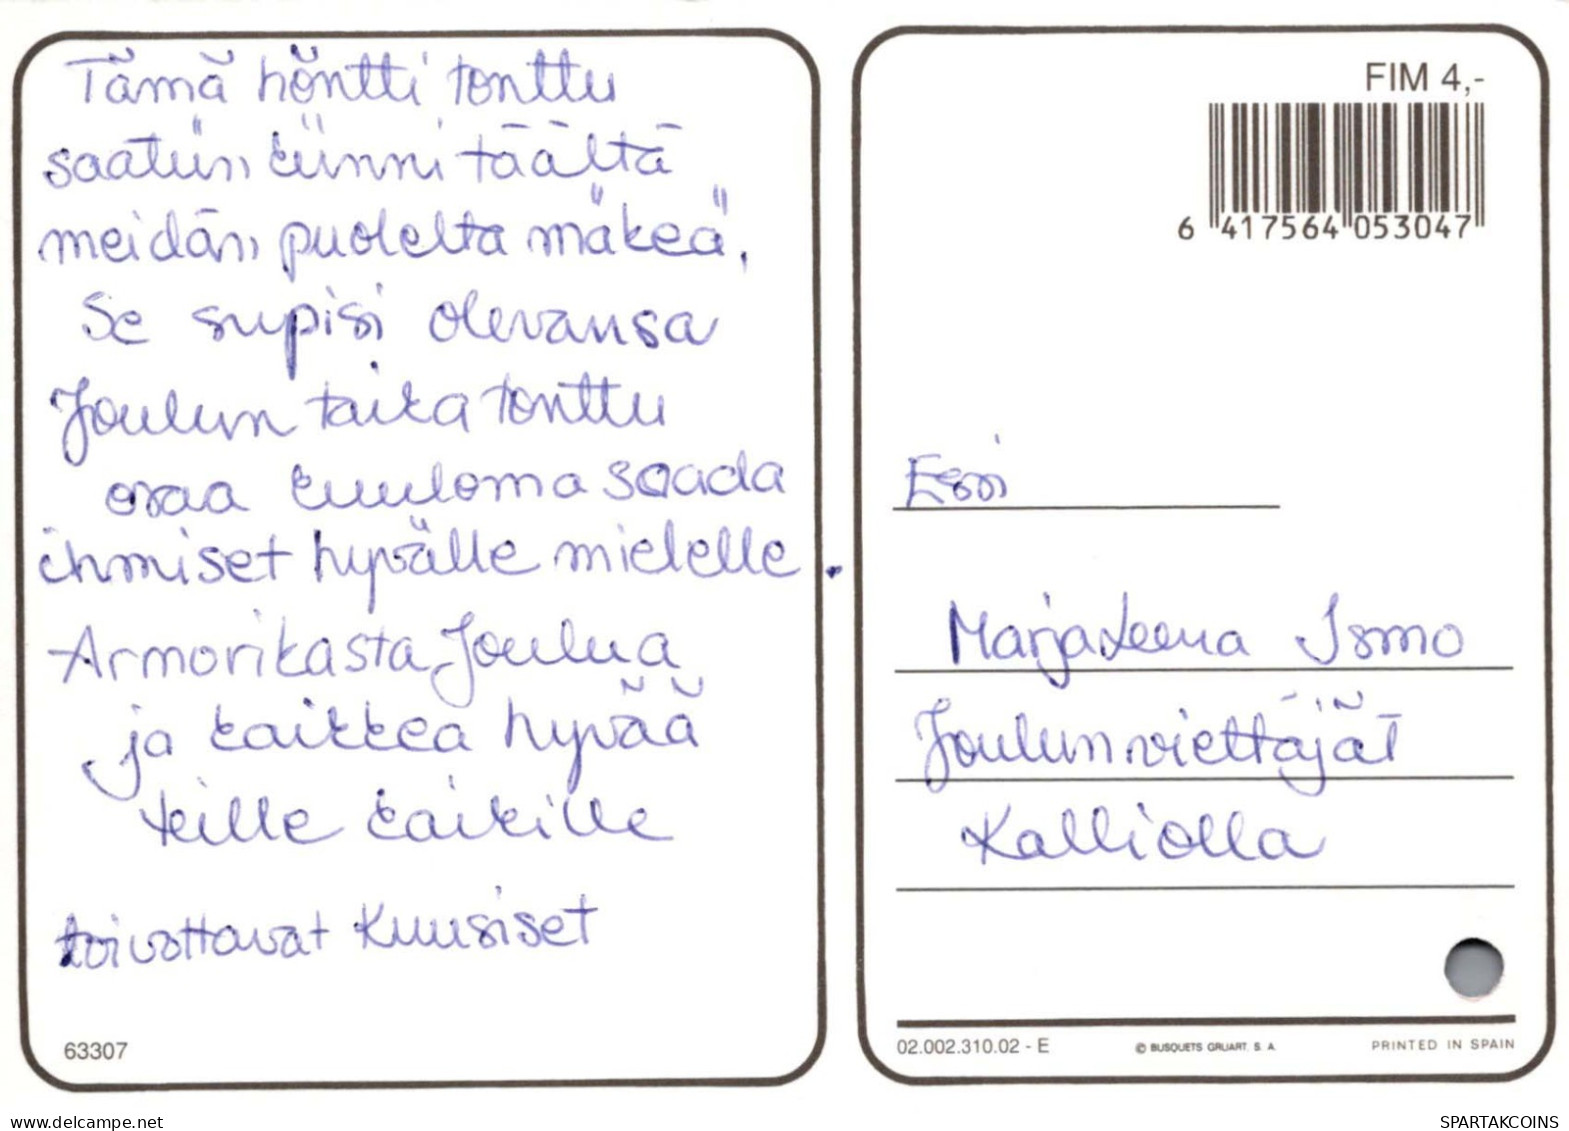 Tämä höntti tonttu
saatiin kiinni täältä
meidän puolelta mäkeä,
Se supisi olevansa
Joulun taika tonttu
osaa kuuloma saada
ihmiset hyvälle mielelle.
Armorikasta Joulua
ja kaikkea hyvää
teille kaikille
toivottavat Kuusiset
63307
FIM 4,-
6 417564 053047
Essi
MarjaLeena Ismo
Joulunviettäjät
Kalliolla
02.002.310.02 - E
© BUSQUETS GRUART. S. A.
PRINTED IN SPAIN
delcampe.net
SPARTAKCOINS